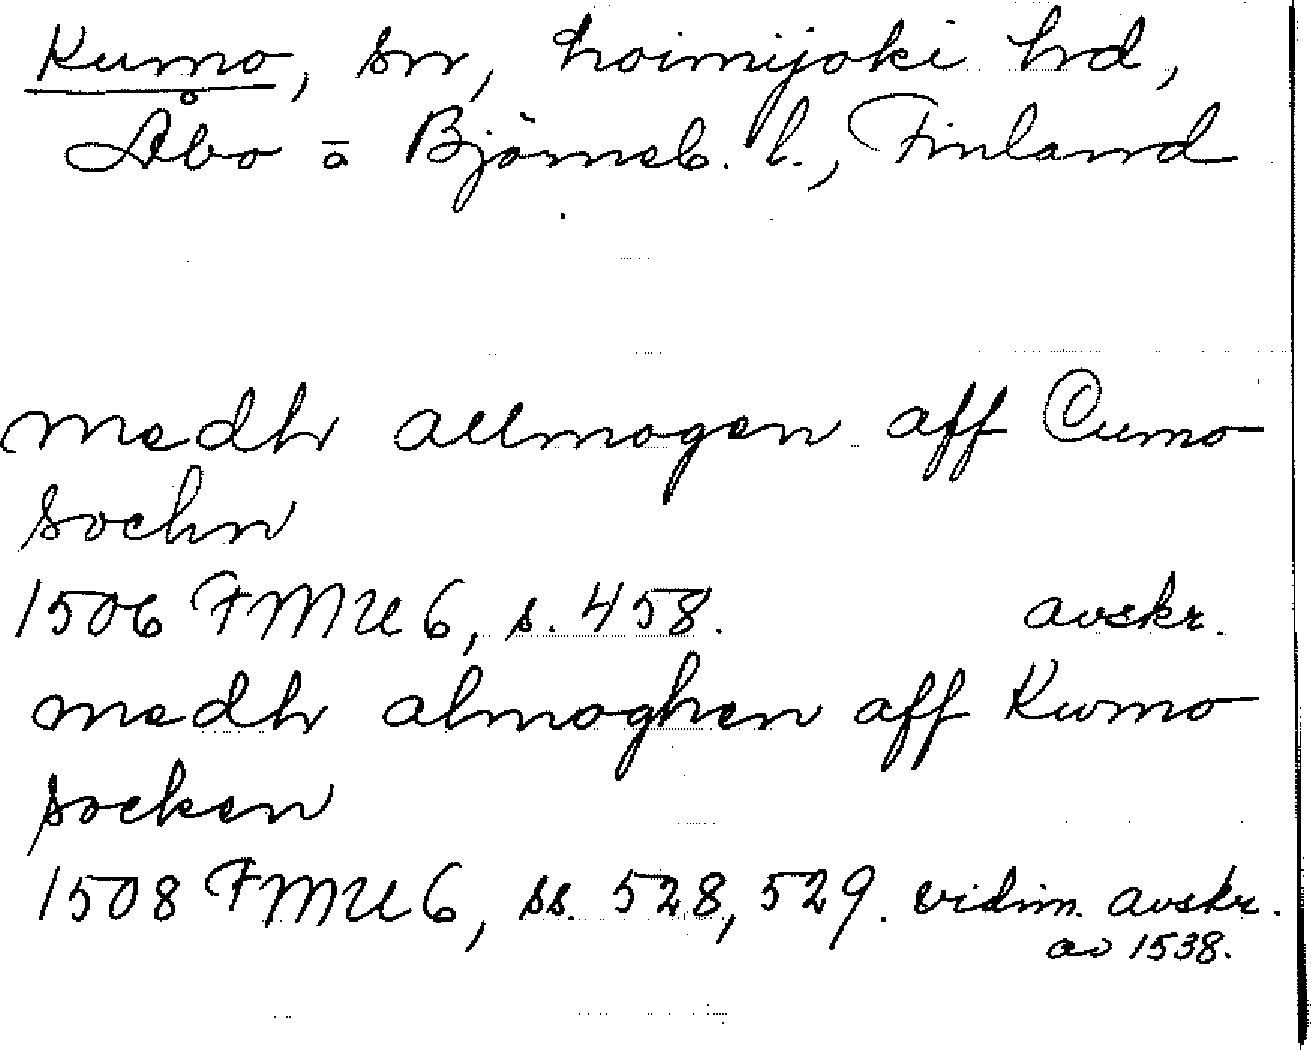 Kumo, sn, Loimijoki hd,
Åbo o Björneb. l., Finland
medh allmogen aff Cumo
sochn
1506 FMU 6, s. 458. avskr.
medh almoghen aff Kumo
socken
1508 FMU 6, ss. 528, 529. vidim. avskr.
av 1538.